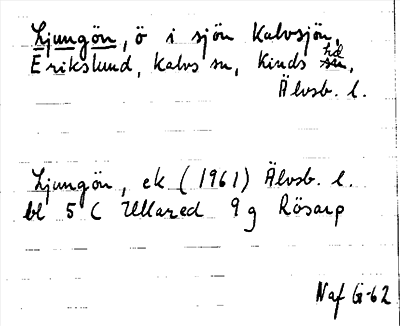 Ljungön, ö i sjön Kalvsjön,
Erikslund, Kalvs sn, Kinds hd,
Älvsb. l.
Ljungön, ek (1961) Älvsb. l.
bl 5 C Ullared 9 g Rösarp
Naf G-62